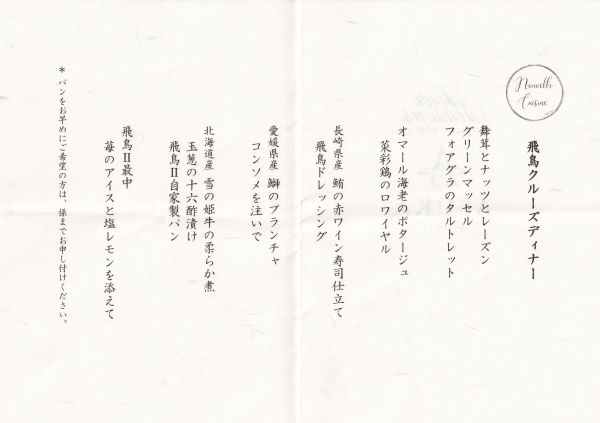 Nouvelle
Cuisine
飛鳥クルーズディナー
舞茸とナッツとレーズン
グリーンマッセル
フォアグラのタルトレット
オマール海老のポタージュ
菜彩鶏のロワイヤル
長崎県産 鮪の赤ワイン寿司仕立て
飛鳥ドレッシング
愛媛県産 鰤のプランチャ
コンソメを注いで
北海道産 雪の姫牛の柔らか煮
玉葱の十六酢漬け
飛鳥Ⅱ自家製パン
飛鳥Ⅱ最中
苺のアイスと塩レモンを添えて
＊ パンをお早めにご希望の方は、係までお申し付けください。